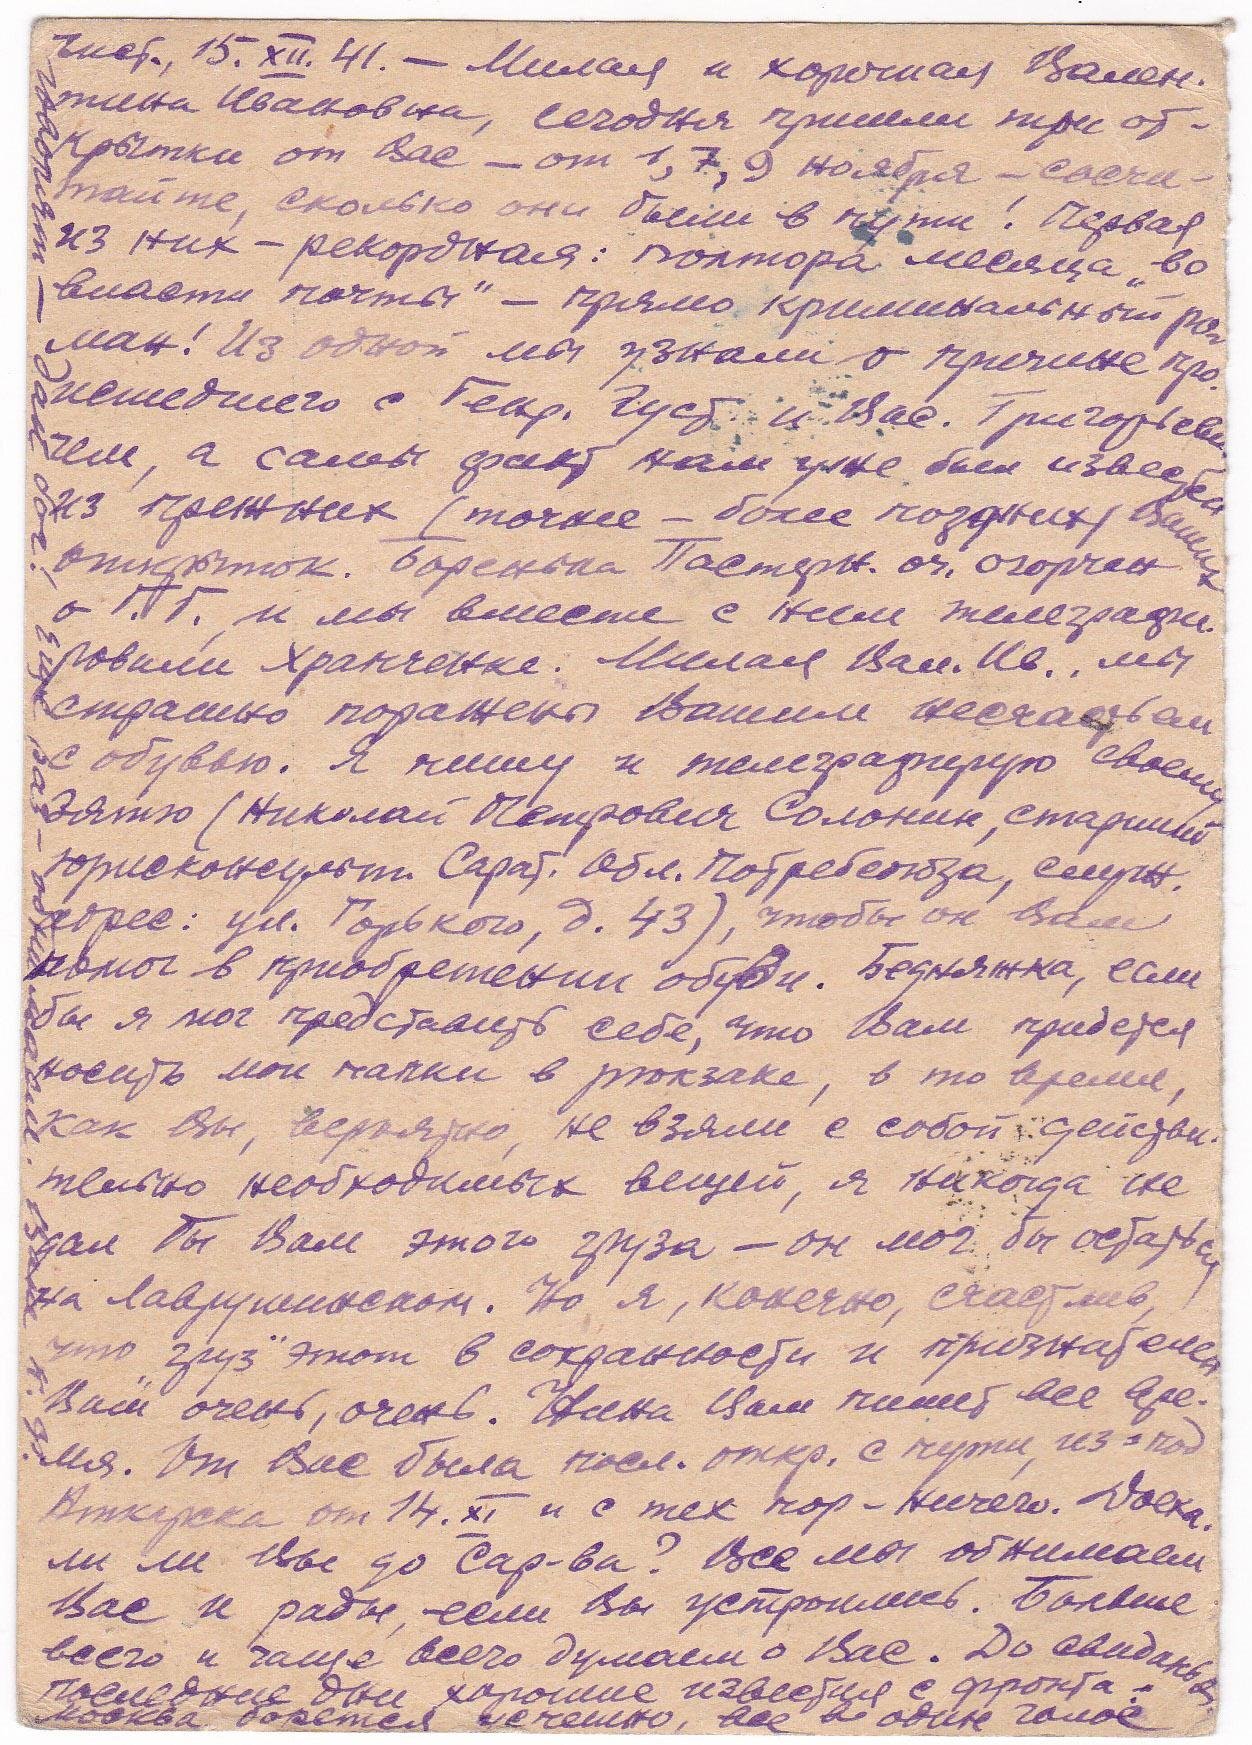 Чист., 15.XII.41. — Милая и хорошая Вален-
тина Ивановна, сегодня пришли три от-
крытки от Вас — от 1, 7, 9 ноября — сосчи-
тайте, сколько они были в пути! Первая
из них — рекордная: полтора месяца „во
власти почты" — прямо криминальный ро-
ман! Из одной мы узнали о причине про-
исшедшего с Генр. Густ. и Вас. Григорьеви-
чем, а самый факт нам уже был известен
из прежних (точнее — более поздних) Ваших
открыток. Боренька Пастерн. оч. огорчен
о Г.Г., и мы вместе с ним телеграфи-
ровали Храпченке. Милая Вал. Ив., мы
страшно поражены Вашим несчастьем
с обувью. Я пишу и телеграфирую своему
зятю (Николай Петрович Солонин, старший
юрисконсульт Сарат. Обл. Потребсоюза, служ.
адрес: ул. Горького, д. 43), чтобы он Вам
помог в приобретении обуви. Бедняжка, если
бы я мог представить себе, что Вам придется
носить мои папки в рюкзаке, в то время,
как Вы, вероятно, не взяли с собой действи-
тельно необходимых вещей, я никогда не
дал бы Вам этого груза — он мог бы остаться
на Лаврушинском. Но я, конечно, счастлив,
что „груз" этот в сохранности и признателен
Вам очень, очень. Нина Вам пишет все вре-
мя. От Вас была посл. откр. с пути, из-под
Аткарска от 14.XI и с тех пор — ничего. Доеха-
ли ли Вы до Сар-ва? Все мы обнимаем
Вас и рады, если Вы устроились. Больше
всего и чаще всего думаем о Вас. До свиданья.
Последние дни хорошие известия с фронта.—
Москва борется успешно, все в один голос
говорят — дай бог! Еще раз — обнимаем. Ваш